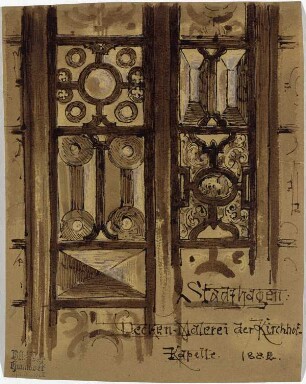 Stadthagen.
Decken-Malerei der Kirchhof-
Kapelle. 1882.